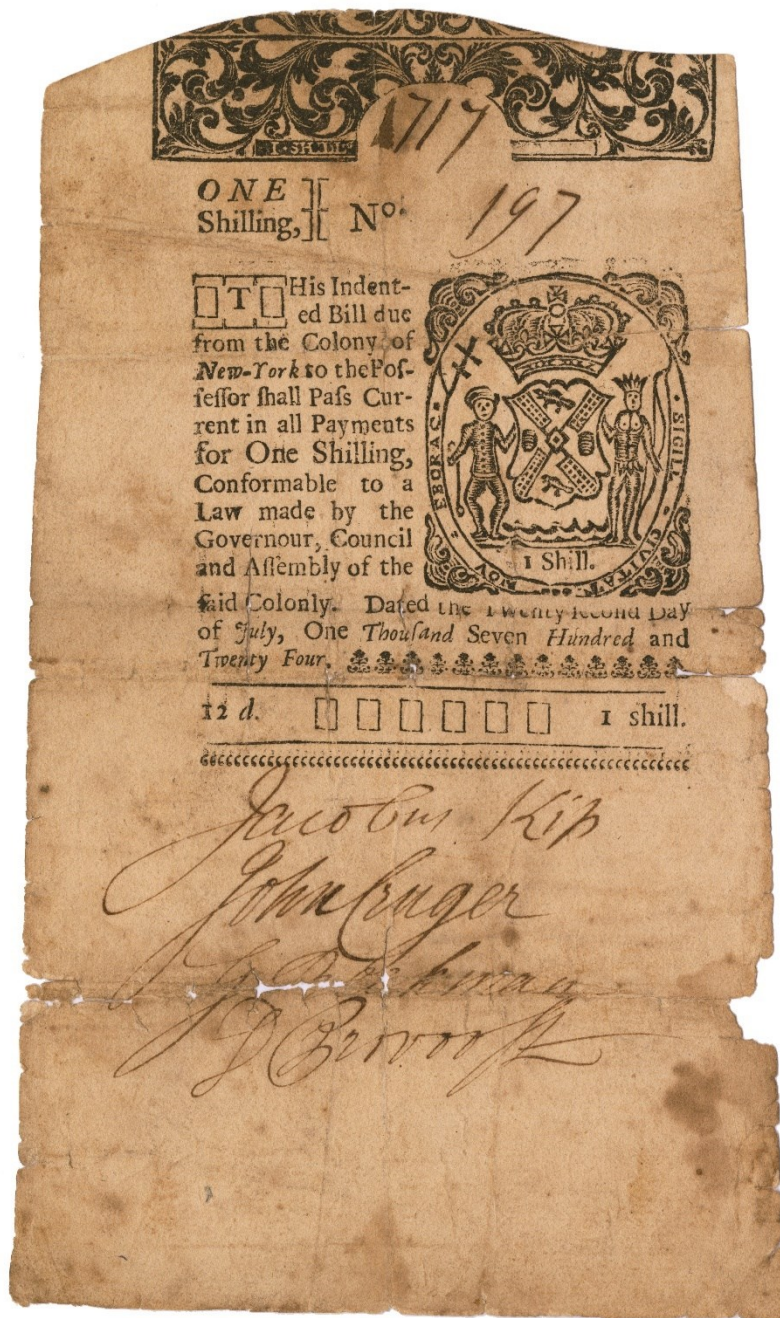 1717
ONE
Shilling, No. 197
THis Indent-
ed Bill due
from the Colony of
New-York to the Poſ-
ſeſſor ſhall Paſs Cur-
rent in all Payments
for One Shilling,
Conformable to a
Law made by the
Governour, Council
and Aſſembly of the
ſaid Colonly. Dated the Twenty ſecond Day
of July, One Thouſand Seven Hundred and
Twenty Four.
SIGILL · CIVITAT · NOV · EBORAC ·
1 Shill.
12 d. 1 shill.
Jacobus Kip
John Cruger
G Beekman
D Provooſt